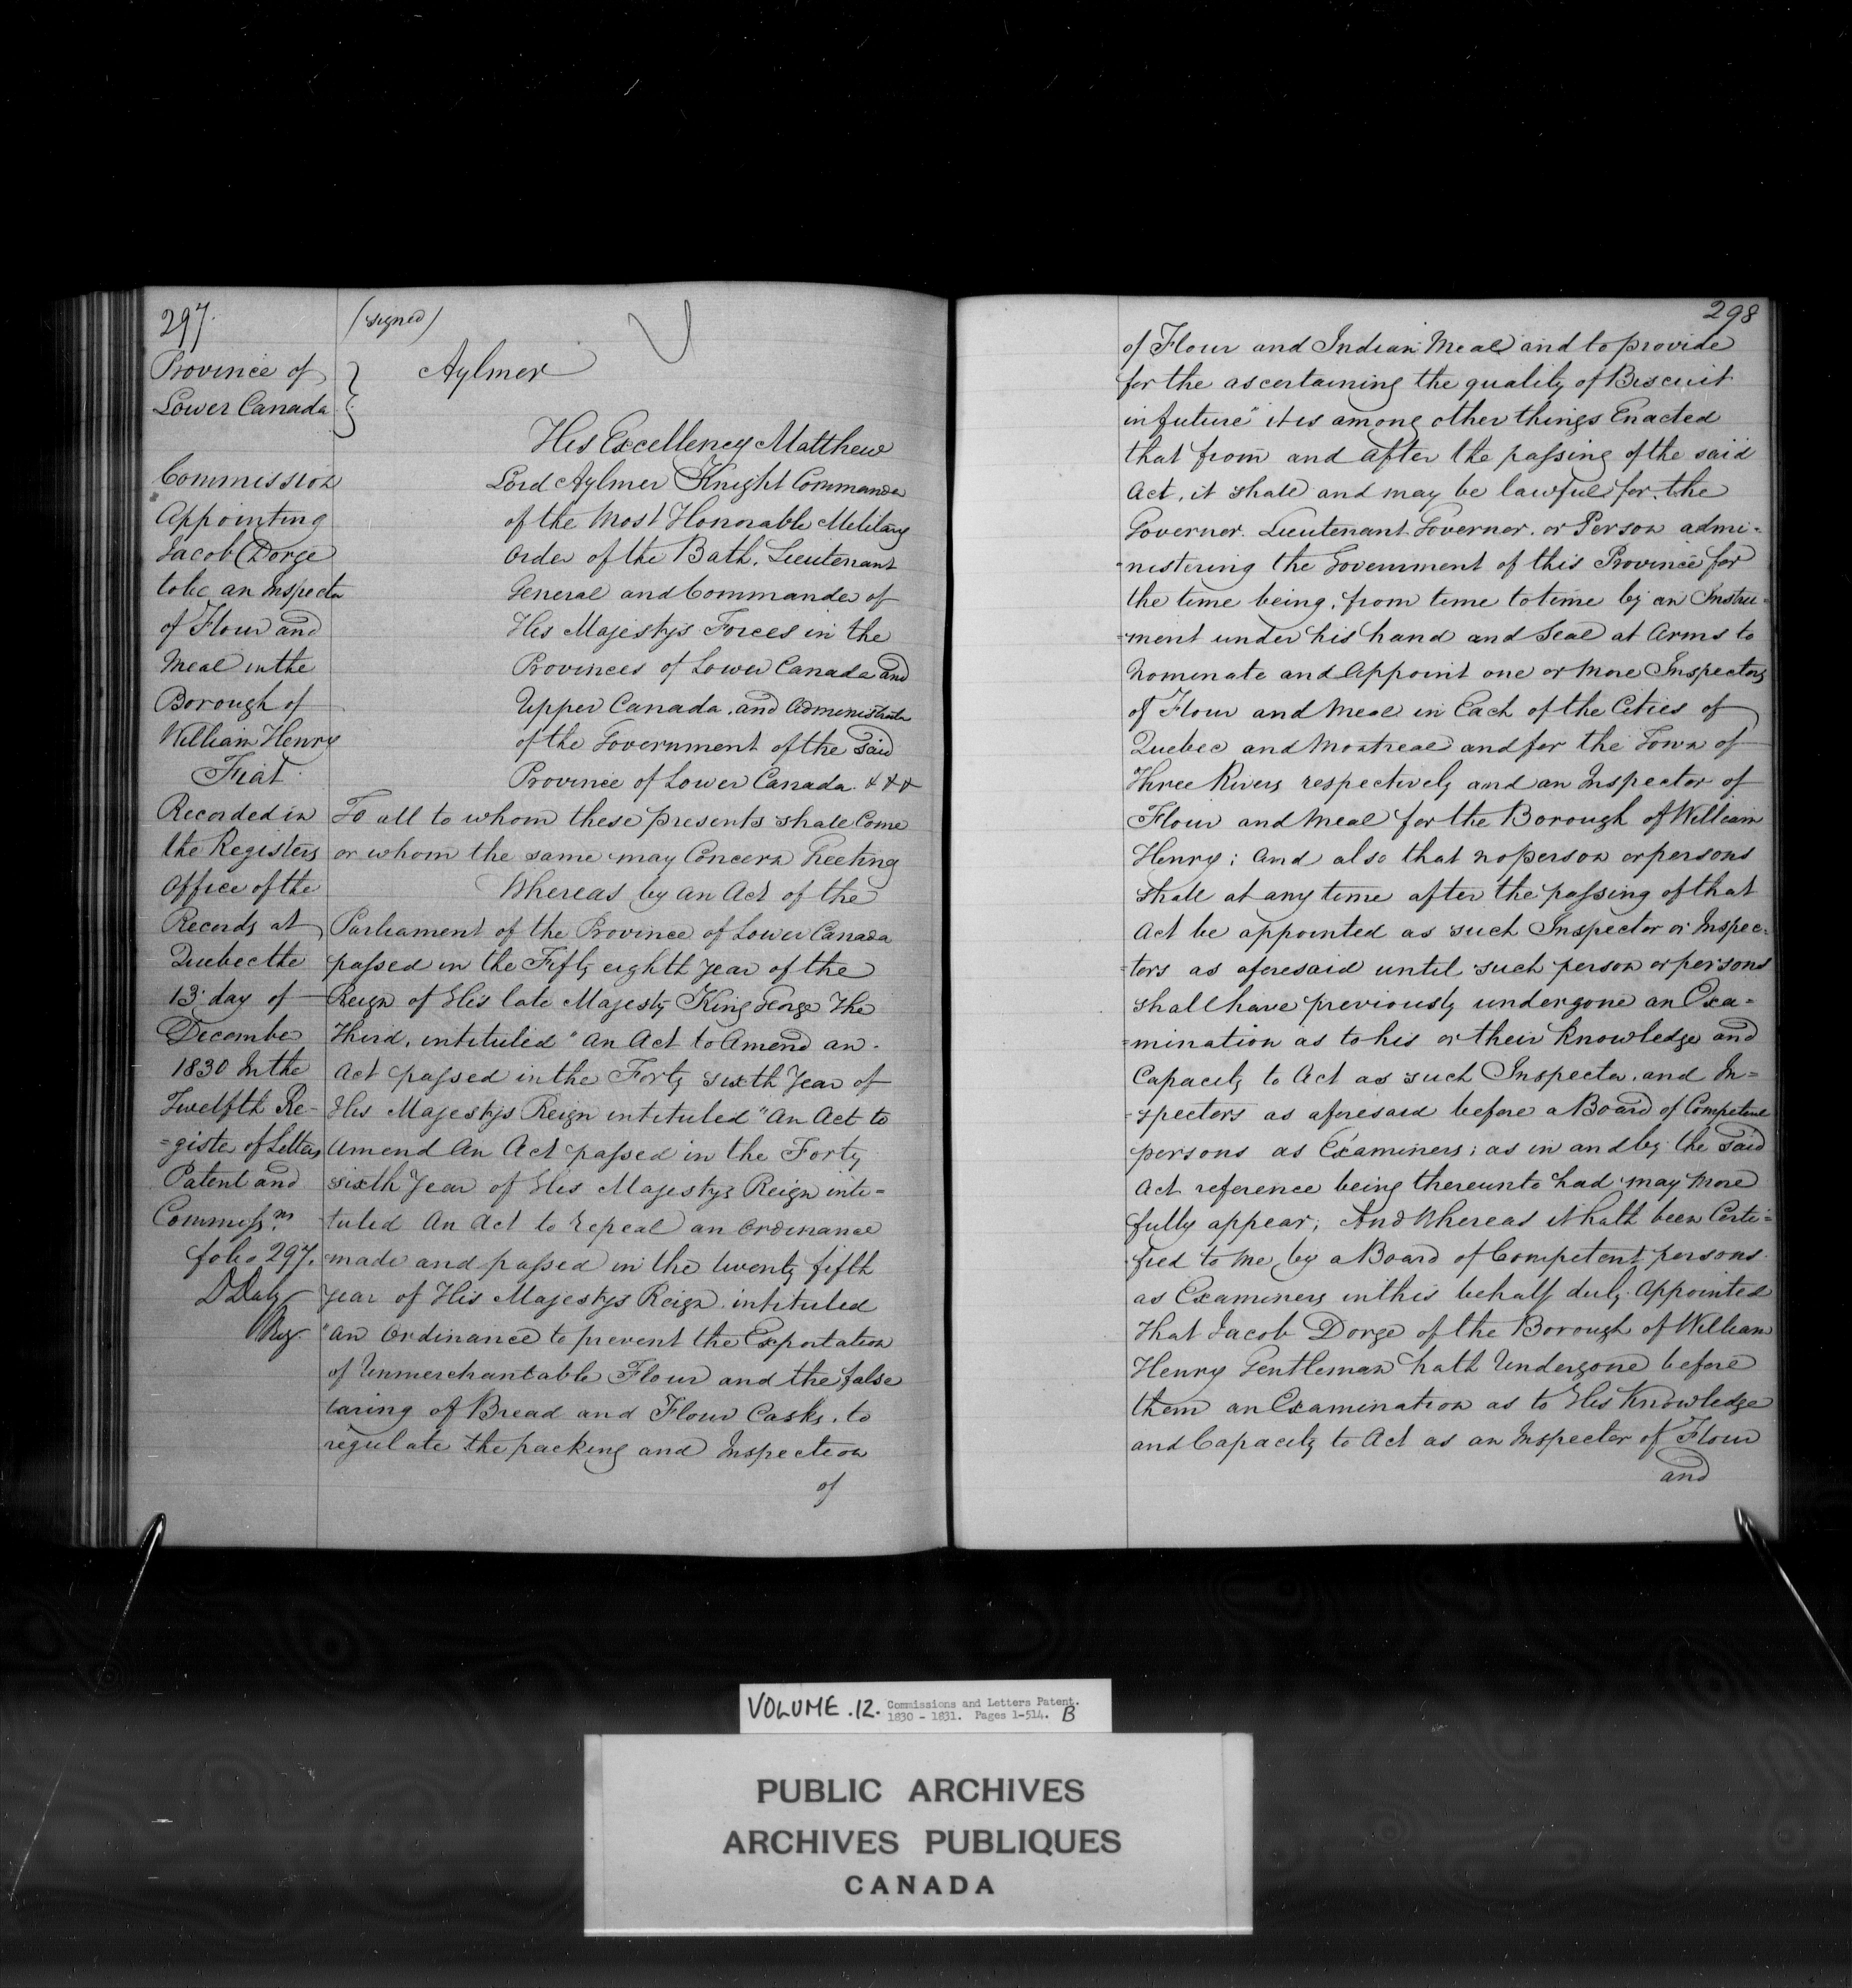 297.
(signed)
Province of
Lower Canada
Aylmer
Commission
Appointing
Jacob Dorge
to be an Inspector
of Flour and
Meal in the
Borough of
William Henry
Fiat
Recorded in
the Registers
Office of the
Records at
Quebec the
13 day of
December
1830 In the
Twelfth Re-
=gister of Letters
Patent and
Commissns.
folio 297.
D Daly
Reg
His Excellency Matthew
Lord Aylmer Knight Commander
of the Most Honorable Military
Order of the Bath, Lieutenant
General and Commander of
His Majestys Forces in the
Provinces of Lower Canada and
Upper Canada, and Administrator
of the Government of the Said
Province of Lower Canada. &&&
To all to whom these presents shall Come
or whom the same may Concern Greeting
Whereas by an Act of the
Parliament of the Province of Lower Canada
passed in the Fifty eighth year of the
Reign of His late Majesty King George The
Third, intituled "An Act to Amend an
Act passed in the Forty sixth Year of
His Majestys Reign intituled "An Act to
Amend An Act passed in the Forty
sixth Year of His Majestys Reign inti=
tuled An Act to repeal an Ordinance
made and passed in the twenty fifth
year of His Majestys Reign intituled
"An Ordinance to prevent the Exportation
of Unmerchantable Flour and the false
taring of Bread and Flour Casks, to
regulate the packing and Inspection
of
298
of Flour and Indian Meal and to provide
for the ascertaining the quality of Biscuit
in future" it is among other things Enacted
that from and after the passing of the said
Act, it shall and may be lawful for the
Governor. Lieutenant Governor. or Person admi=
=nistering the Government of this Province for
the time being, from time to time by an Instru=
=ment under his hand and Seal at Arms to
Nominate and Appoint one or more Inspectors
of Flour and Meal in Each of the Cities of
Quebec and Montreal and for the Town of
Three Rivers respectively and an Inspector of
Flour and Meal for the Borough of William
Henry; And also that no person or persons
shall at any time after the passing of that
Act be appointed as such Inspector or Inspec=
=tors as aforesaid until such person or persons
shall have previously undergone an Exa=
=mination as to his or their knowledge and
Capacity to Act as such Inspector, and In=
=spectors as aforesaid before a Board of Competent
persons as Examiners; as in and by the Said
Act reference being thereunto had may More
fully appear; And Whereas it hath been Certi=
fied to me by a Board of Competent persons
as Examiners in this behalf duly Appointed
that Jacob Dorge of the Borough of William
Henry Gentleman hath Undergone before
them an Examination as to His Knowledge
and Capacity to Act as an Inspector of Flour
and
VOLUME .12. Commissions and Letters Patent.
1830 - 1831. Pages 1-514. B
PUBLIC ARCHIVES
ARCHIVES PUBLIQUES
CANADA